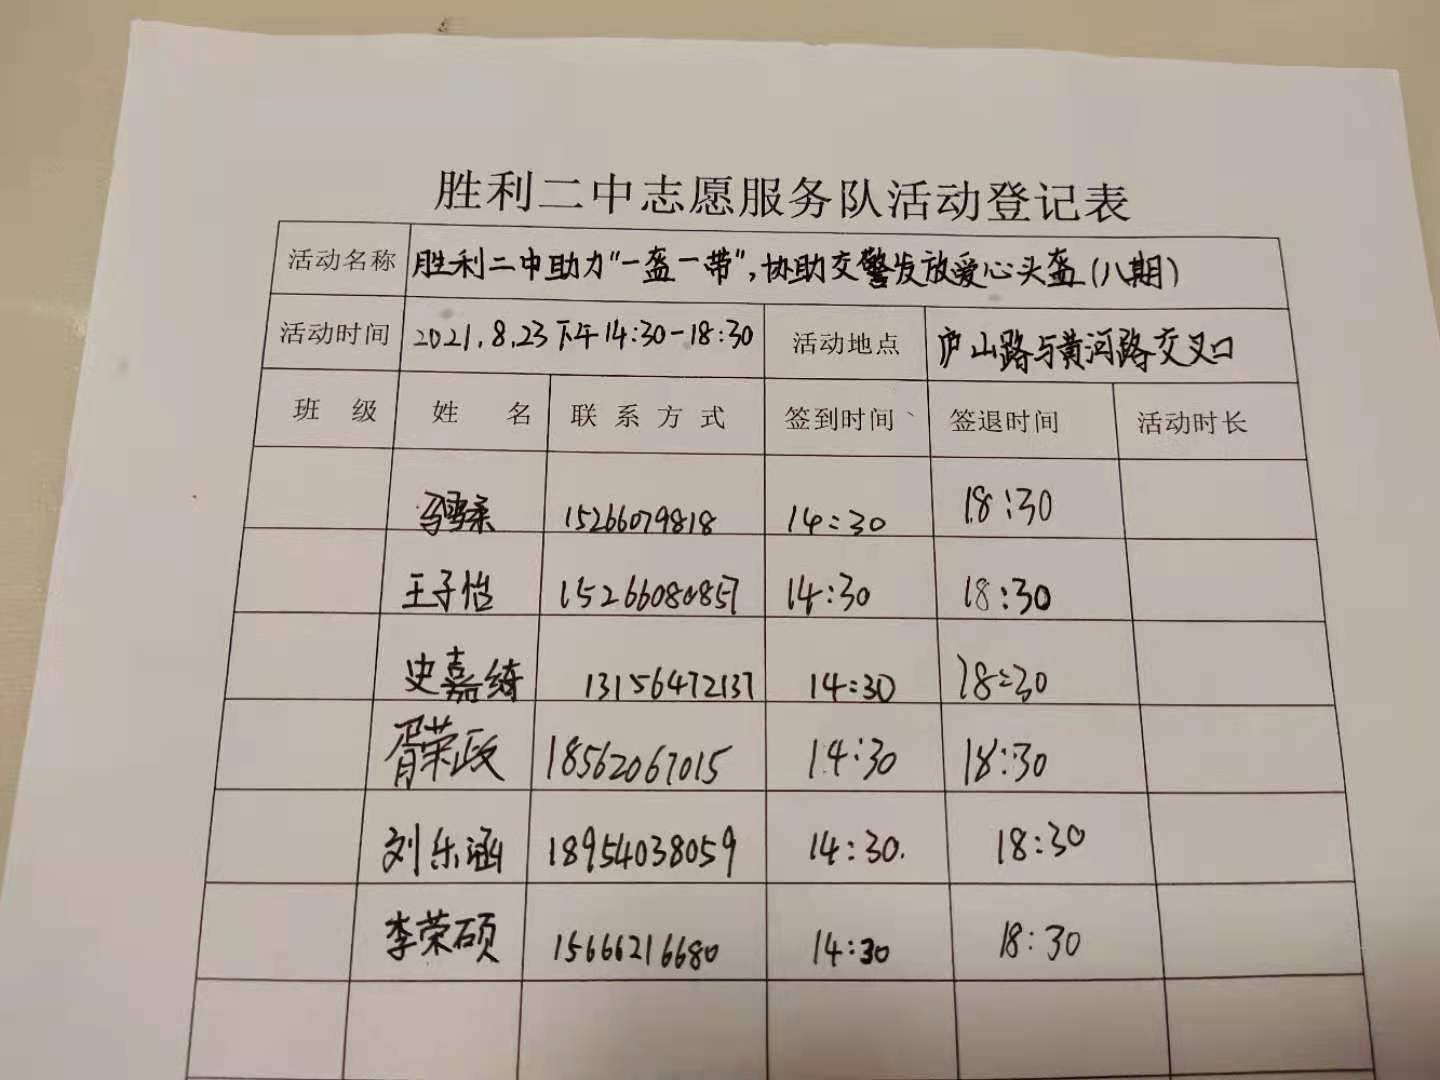 胜利二中志愿服务队活动登记表
活动名称 胜利二中助力"一盔一带",协助交警发放爱心头盔(八期)
活动时间 2021.8.23下午14:30-18:30 活动地点 庐山路与黄河路交叉口
班 级 姓 名 联 系 方 式 签到时间 签退时间 活动时长
马雪柔 15266079818 14:30 18:30
王子怡 15266080857 14:30 18:30
史嘉绮 13156472137 14:30 18:30
胥荣政 18562067015 14:30 18:30
刘乐涵 18954038059 14:30. 18:30
李荣硕 15666216680 14:30 18:30